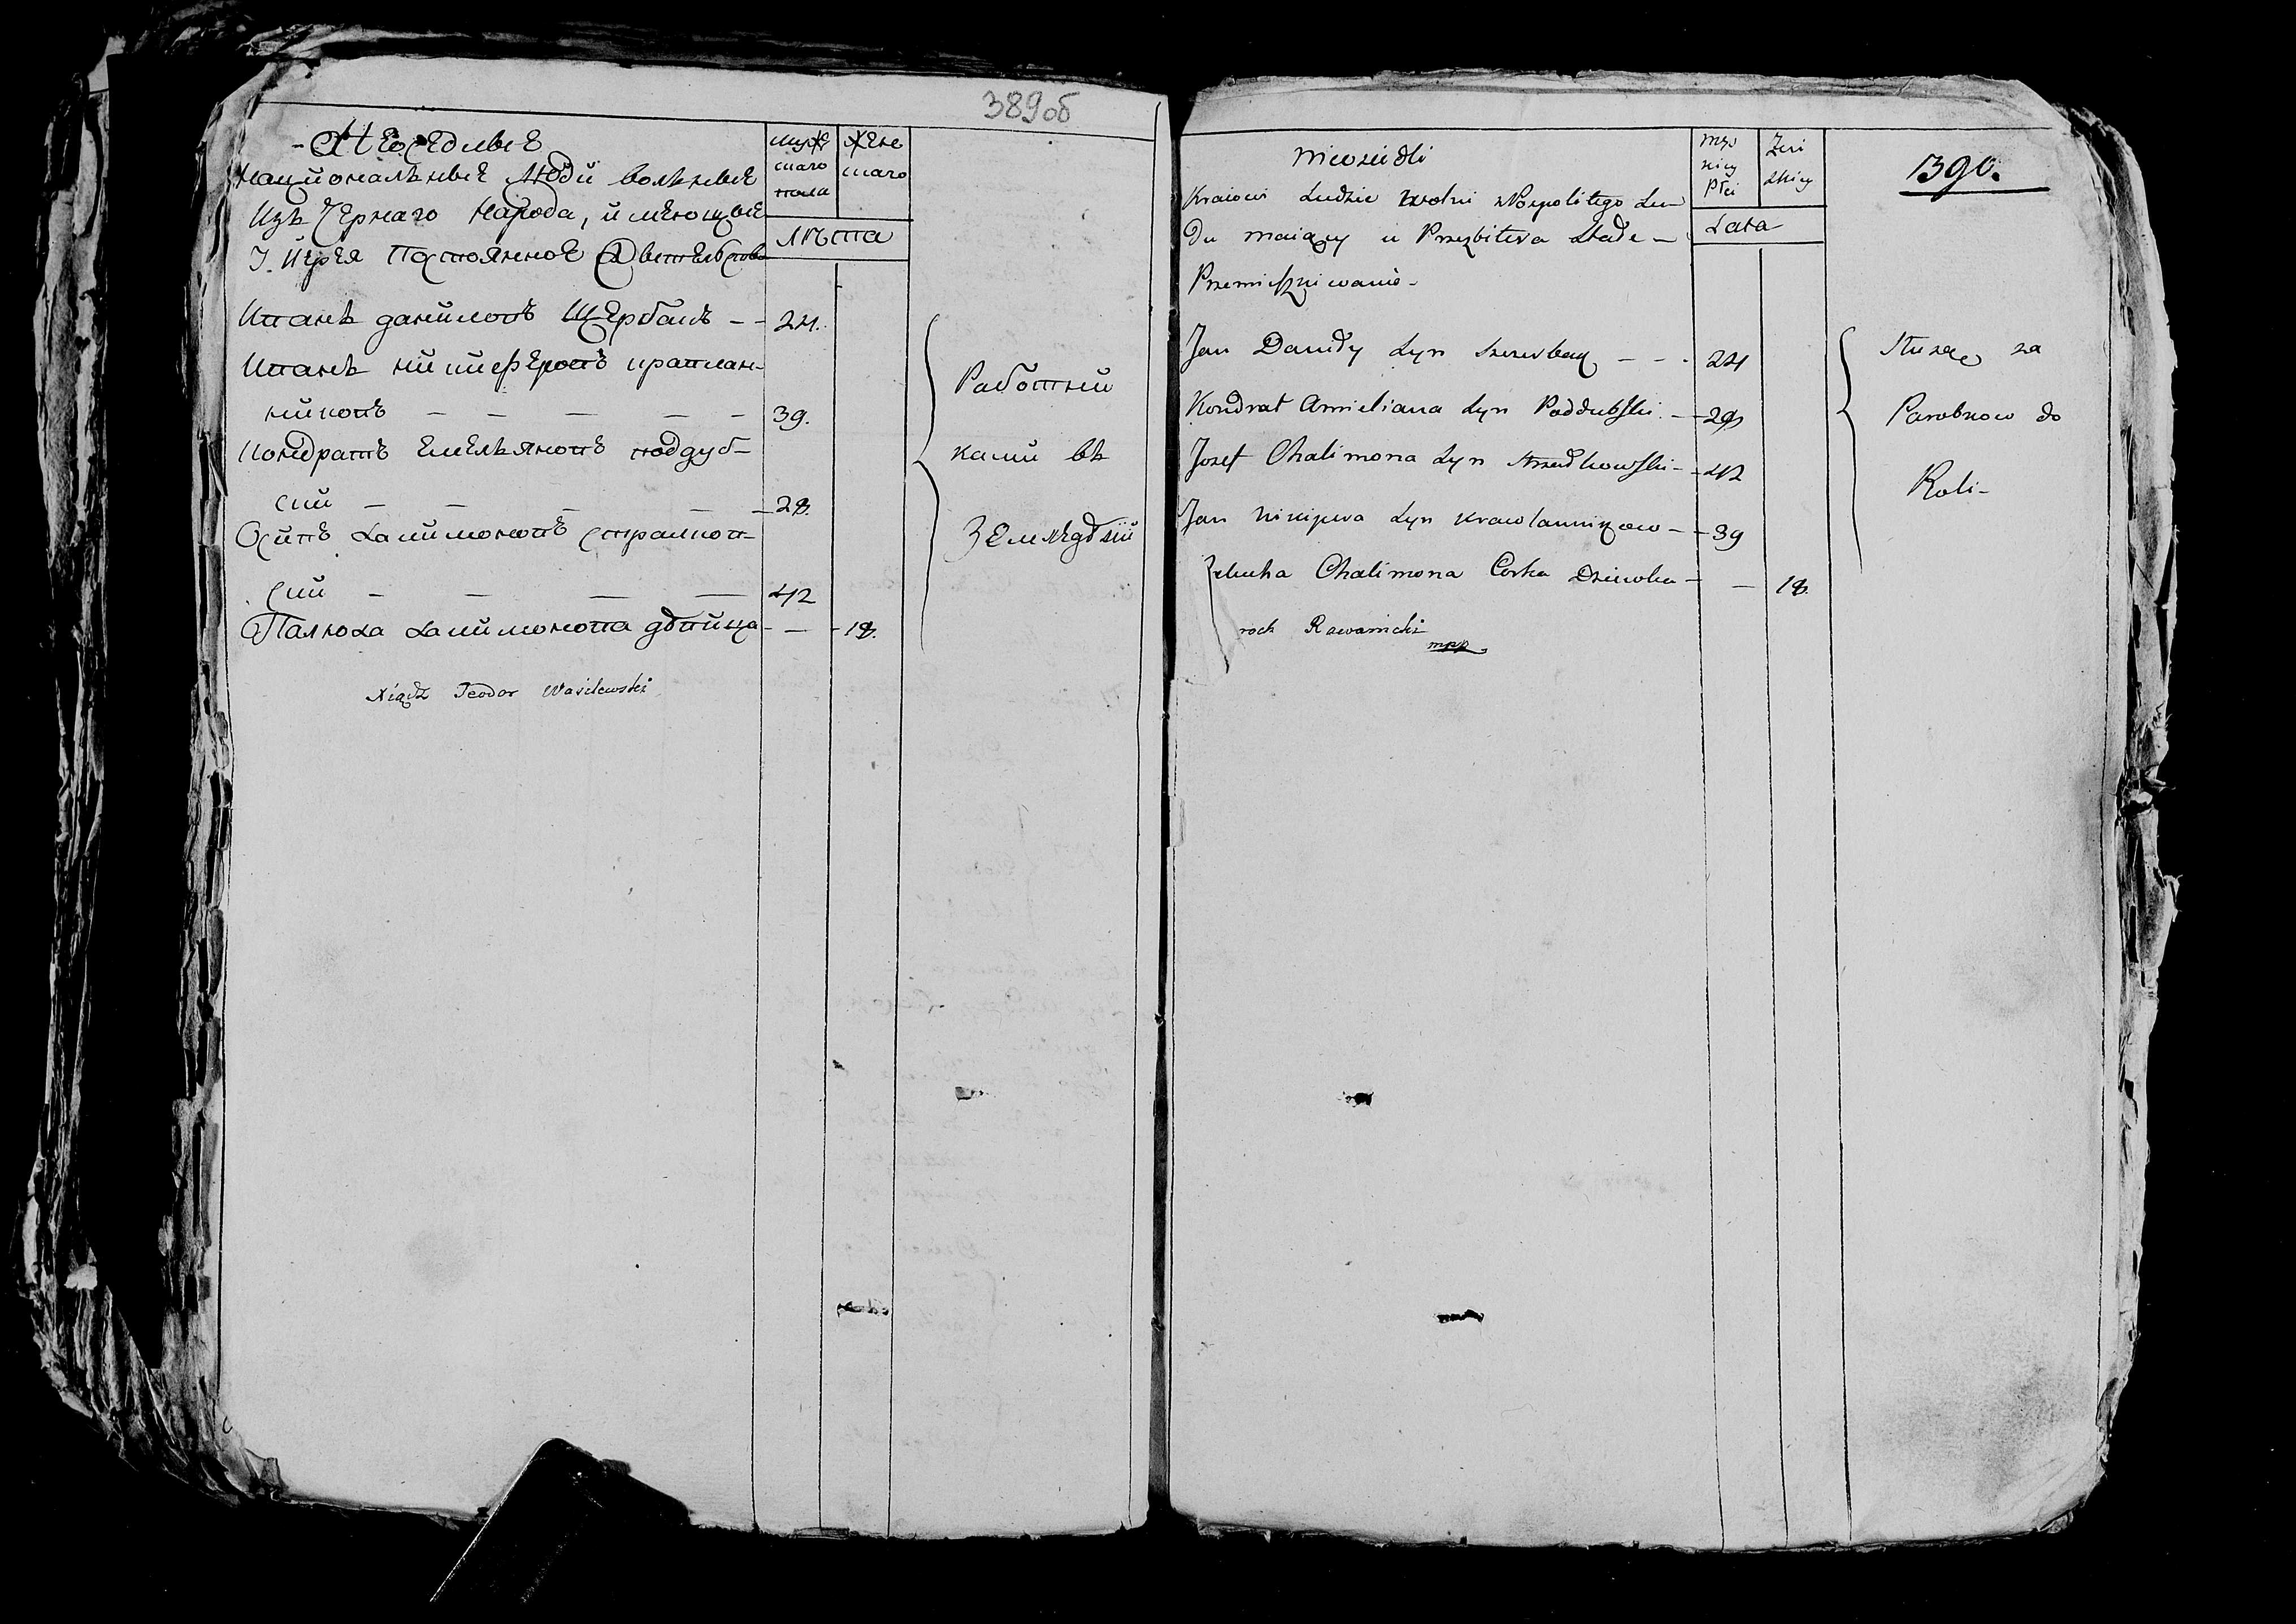 389об
Неоседлые
Националные люди волные
Изъ чернаго народа, имеющые
У Иерея Постоянное
мужескаго пола
женскаго
Лѣта
Иванъ даниловъ Щербакъ – – 24.
Иванъ никиферовъ кравлан-
никовъ – – – – – 39.
Кондратъ Емельяновъ поддуб-
ский – – – – – 28.
Осипъ халимоновъ стралков-
ский – – – – 42
Палюха халимонова дѣвица – – 18.
Работни
ками въ
Земледѣлїи
Xiądz Teodor Wasilewski
1390.
Nieosiedli
Kraiowi Ludzie wolni z Pospolitego Lu-
du maiący u Prezbitera Stałe –
Przemieszkiwanie –
Męzkiey Płci
Żeńskiey
Lata
Jan Daniły Syn Szczerbak – – – 24
Kondrat Amieliana Syn Poddubski – 28
Jozef Chalimona Syn Strzałkowski – 42
Jan Nikipera Syn Krawlannikow – 39
Chalimona Corka Dziewka – – 18.
roch Rawanicki
mpp
Służąc za
Parobkow do
Roli –